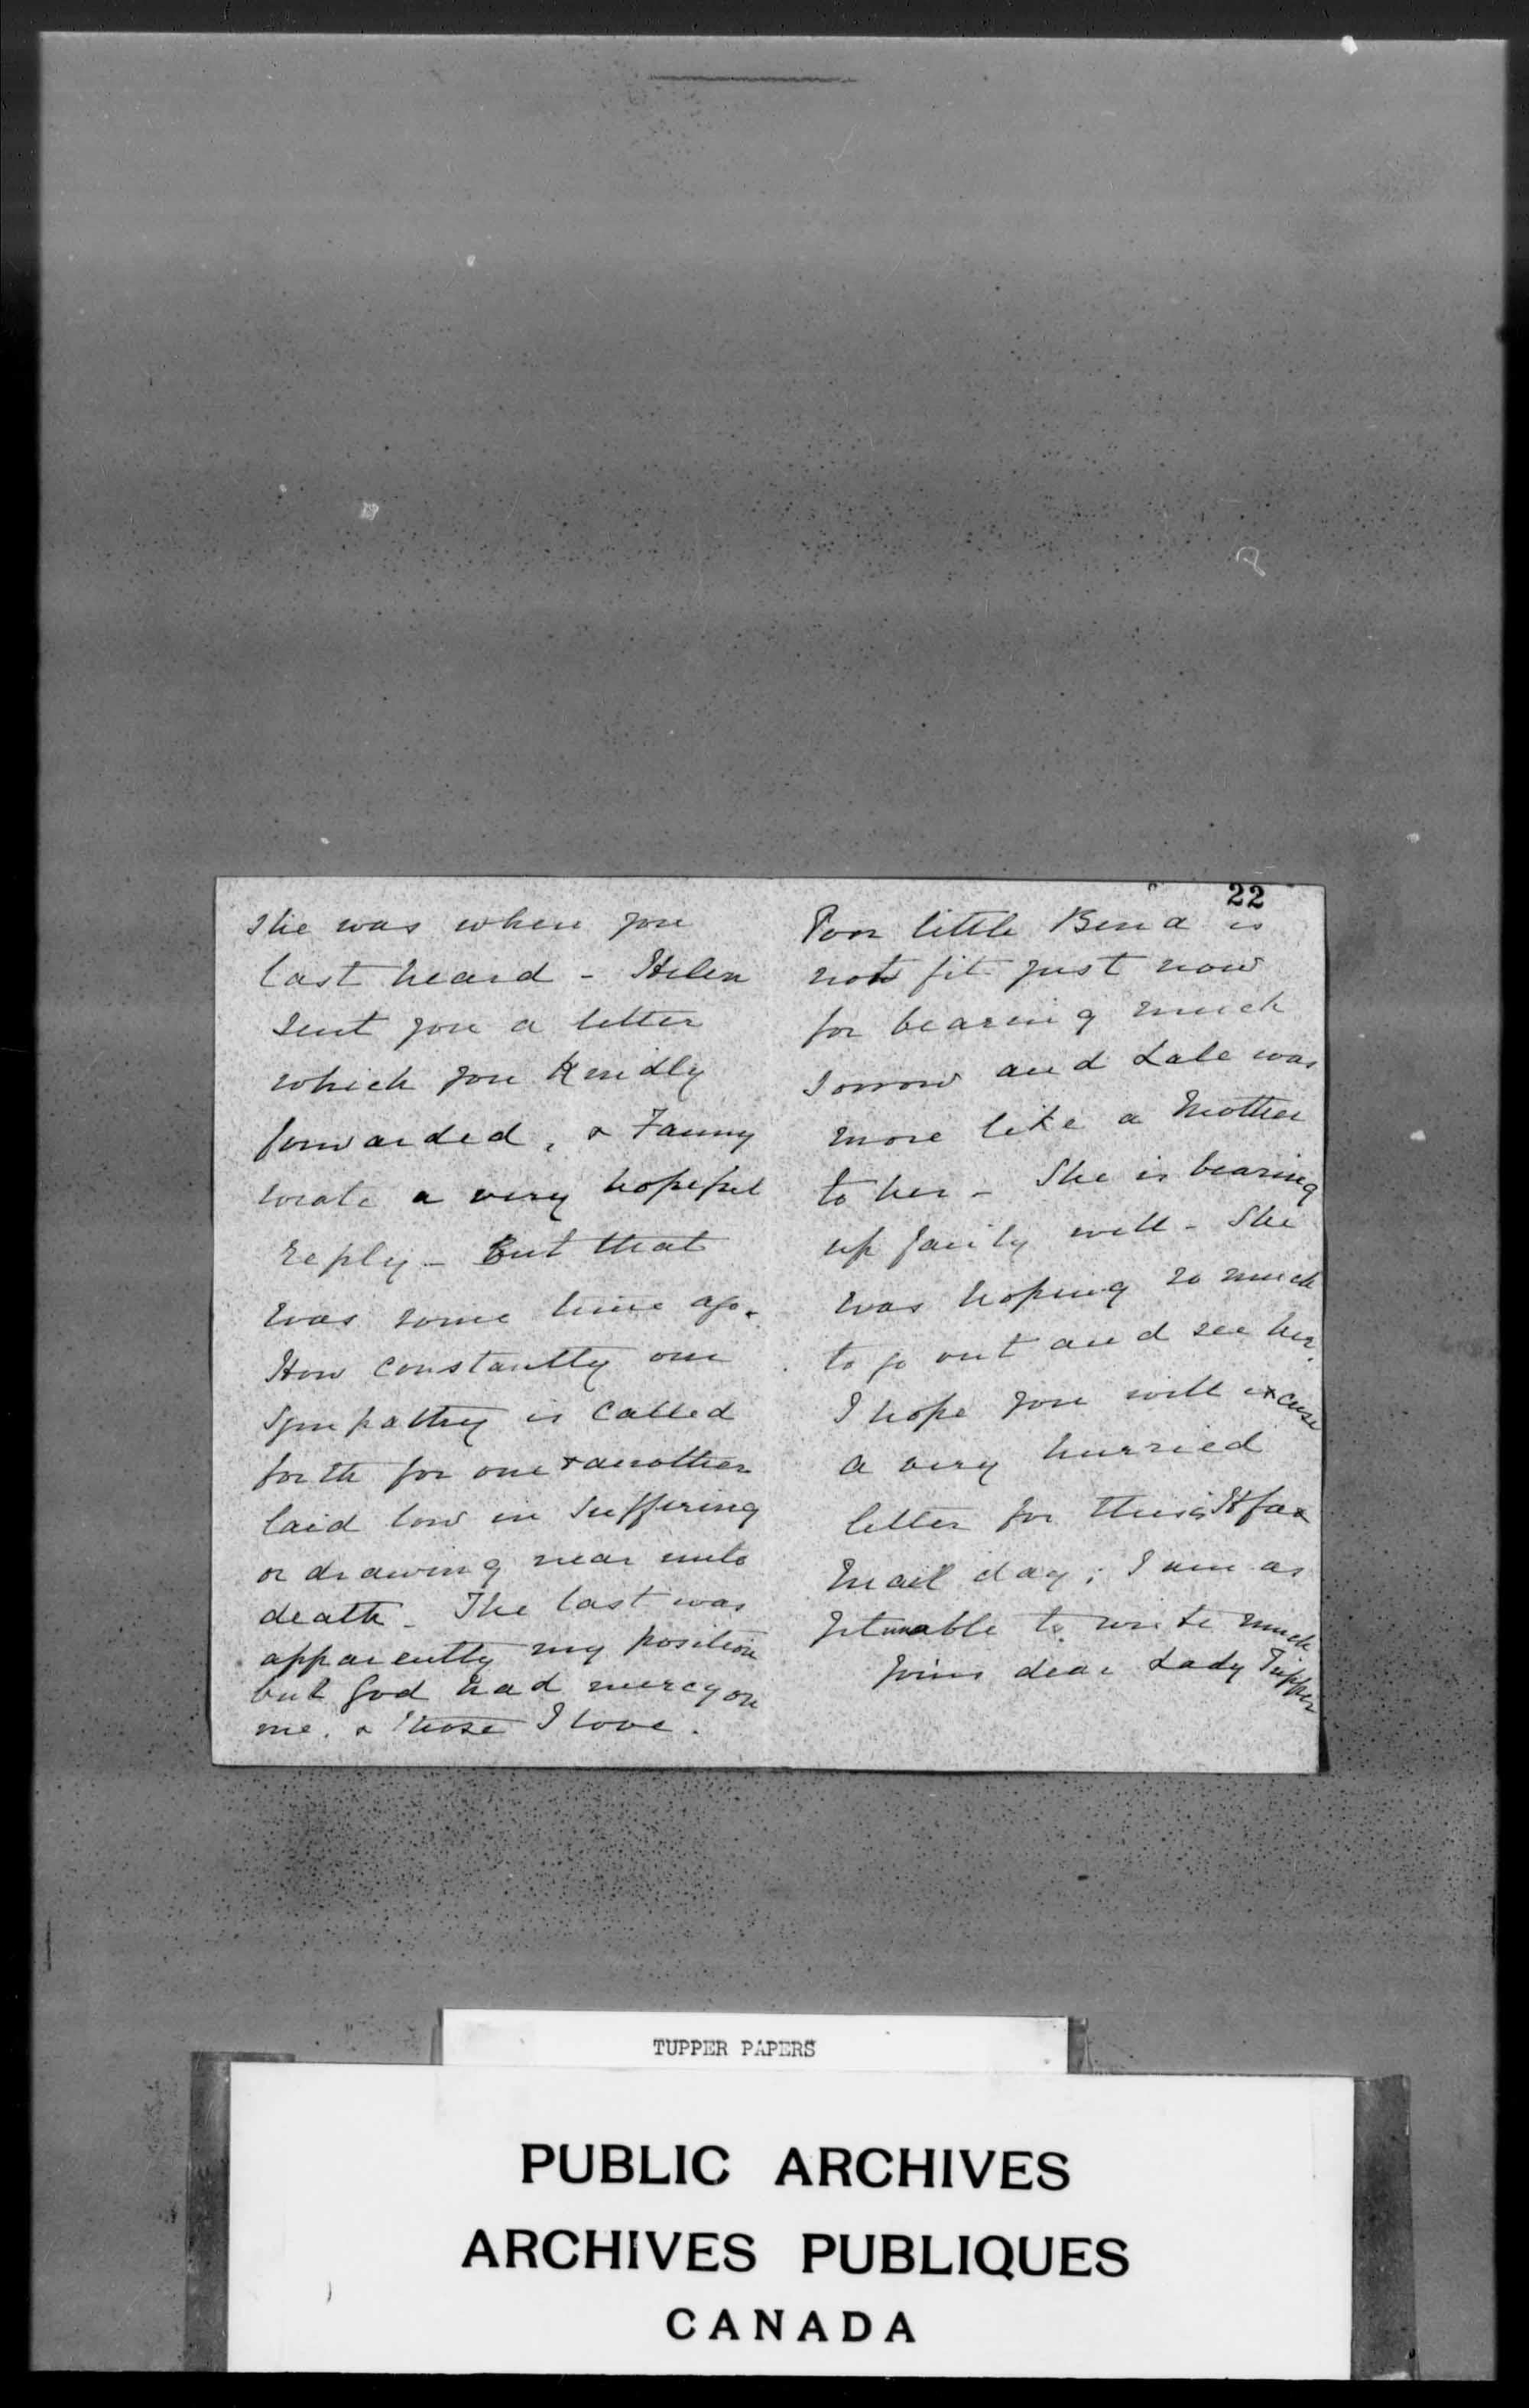 she was when you
last heard - Helen
sent you a letter
which you kindly
forwarded, & Fanny
wrote a very hopeful
reply - But that
was some time ago.
How constantly our
sympathy is called
forth for one & another
laid low in suffering
or drawing near unto
death - The last was
apparently my position
but God had mercy on
me. & those I love.
22
Poor little Bena is
not fit just now
for bearing much
sorrow and Lale was
more like a Mother
to her - She is bearing
up fairly well - She
was hoping so much
to go out and see her.
I hope you will excuse
a very hurried
letter for this is Hfax
Mail day; I am as
yet unable to write much
Yours dear Lady Tupper
TUPPER PAPERS
PUBLIC ARCHIVES
ARCHIVES PUBLIQUES
CANADA